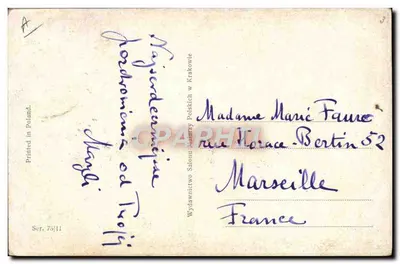 A
Najserdeczniejsze
pozdrowienia od Twojej
Maryli
Printed in Poland.
Ser. 75/11
Wydawnictwo Salonu Malarzy Polskich w Krakowie
CPARAMA
Madame Marie Faure
rue Horace-Bertin 52
Marseille
France